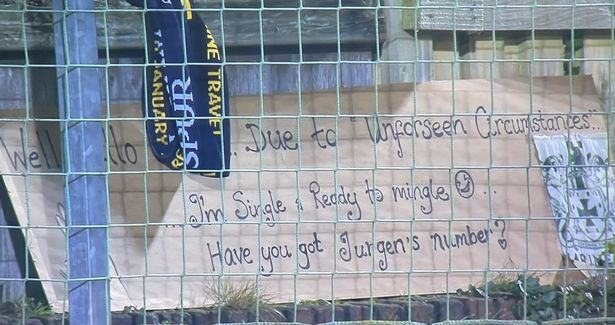 Well ...llo .. Due to "Unforseen Circumstances"..
...I'm Single & Ready to mingle ☺...
Have you got Jurgen's number?
JANUARY
SPUR
INE TRAVEL